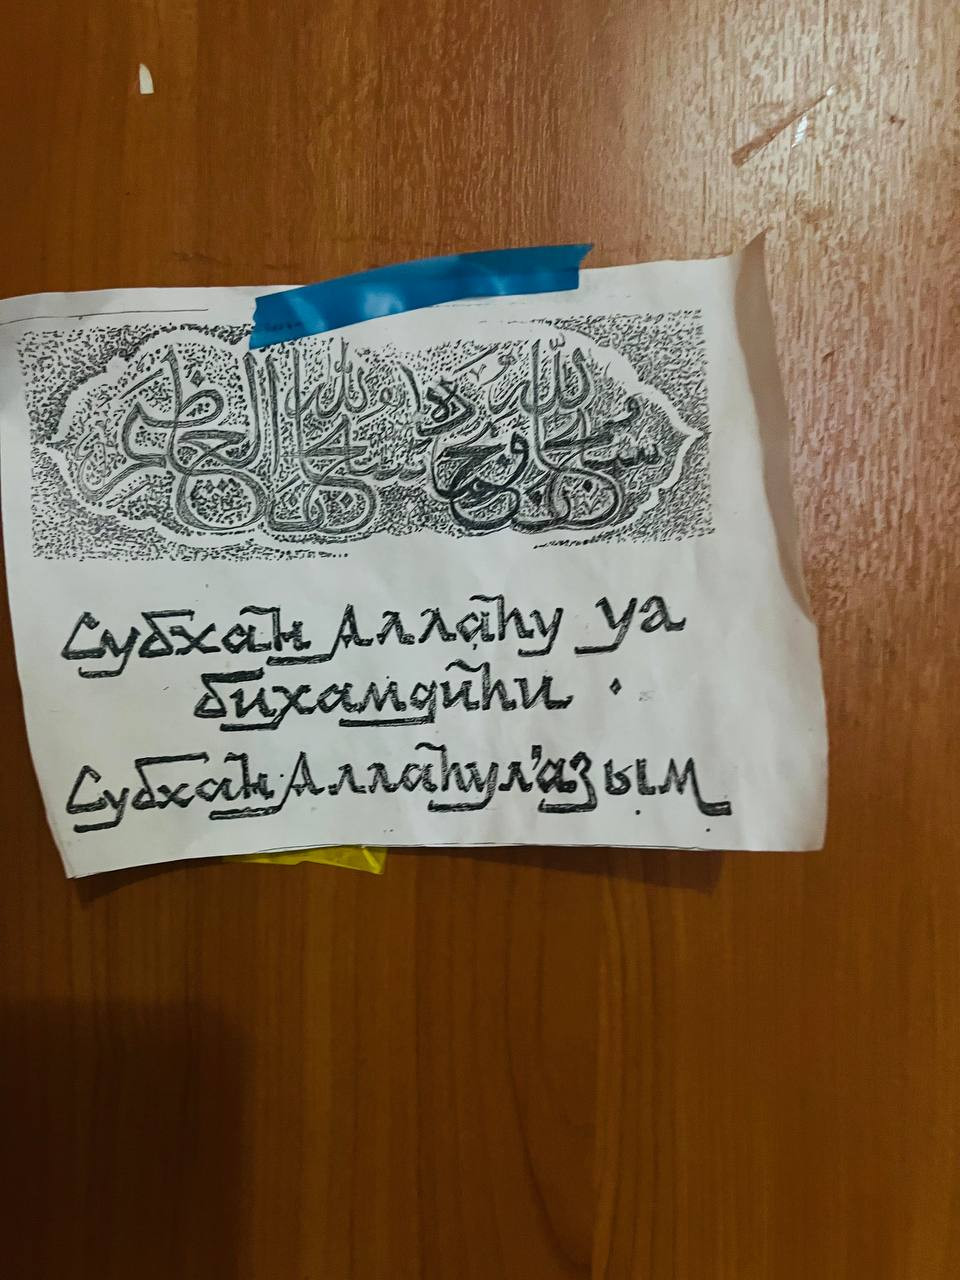 سبحان الله وبحمده سبحان الله العظيم
Субхāн Аллāһу уа
бихамдиһи .
Субхāн Аллāһул'азым